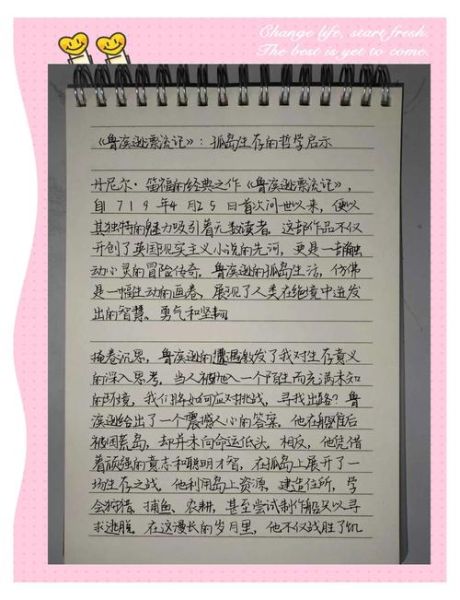 Change life, start fresh.
The best is yet to come.
《鲁滨逊漂流记》：孤岛生存的哲学启示
丹尼尔·笛福的经典之作《鲁滨逊漂流记》，
自719年4月25日首次问世以来，便以
其独特的魅力吸引着无数读者。这部作品不仅
开创了英国现实主义小说的先河，更是一部触
动心灵的冒险传奇。鲁滨逊的孤岛生活，仿佛
是一幅生动的画卷，展现了人类在绝境中迸发
出的智慧、勇气和坚韧
掩卷沉思，鲁滨逊的遭遇激发了我对生存意义
的深入思考。当人被抛入一个陌生而充满未知
的环境，我们将如何应对挑战，寻找出路？鲁
滨逊给出了一个震撼人心的答案。他在船难后
被困荒岛，却并未向命运低头。相反，他凭借
着顽强的意志和聪明才智，在孤岛上展开了一
场生存之战。他利用岛上资源，建造住所，学
会狩猎、捕鱼、农耕，甚至尝试制作船只以寻
求逃脱。在这漫长的岁月里，他不仅战胜了饥